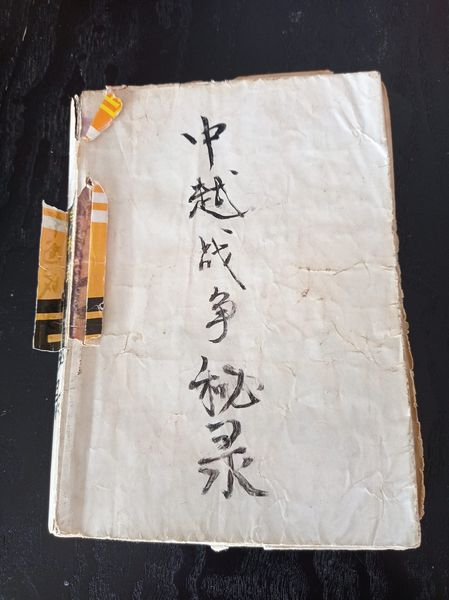 中越战争秘录